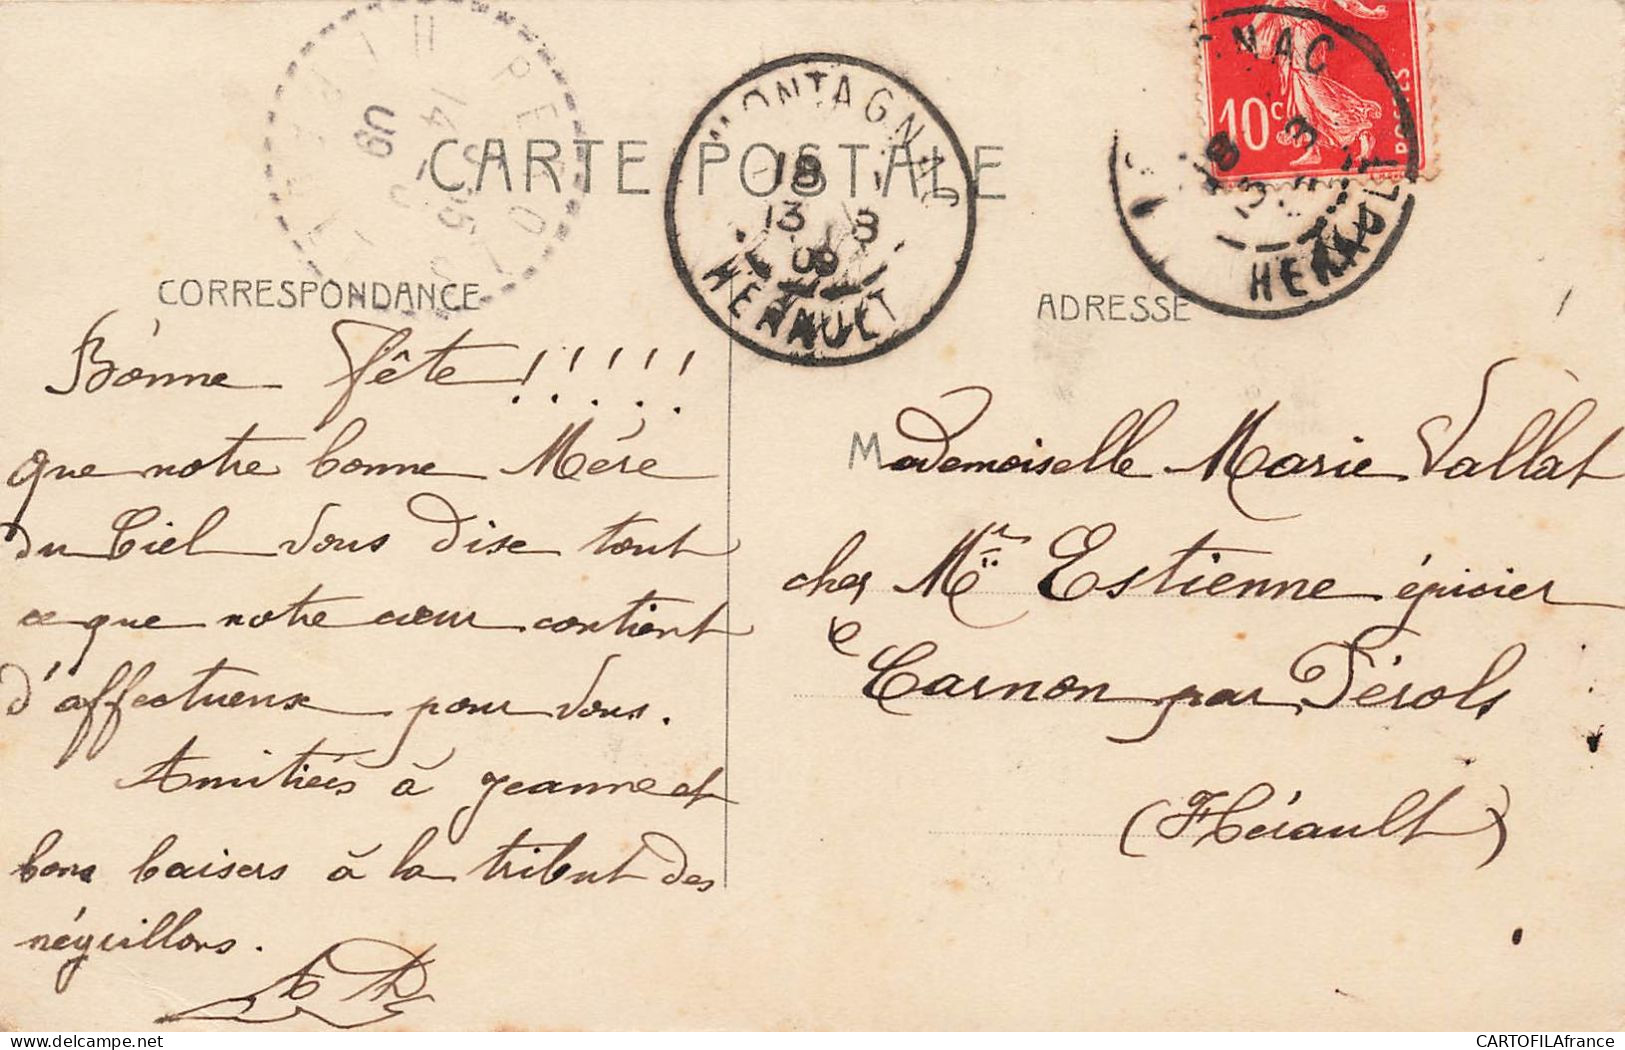 CARTE POSTALE
CORRESPONDANCE
ADRESSE
MONTAGNAC
18
13 8
09
HERAULT
10c
POSTES
NAC
HERAULT
PEROLS
14
09
Bonne fête !!!!!
que notre bonne Mère
du Ciel vous dise tout
ce que notre cœur contient
d'affectueux pour vous.
Amitiés à Jeanne et
bons baisers à la tribut des
néguillons.
Mademoiselle Marie Vallat
chez Mr Estienne épicier
Carnon par Pérols
(Hérault)
CARTOFILAfrance